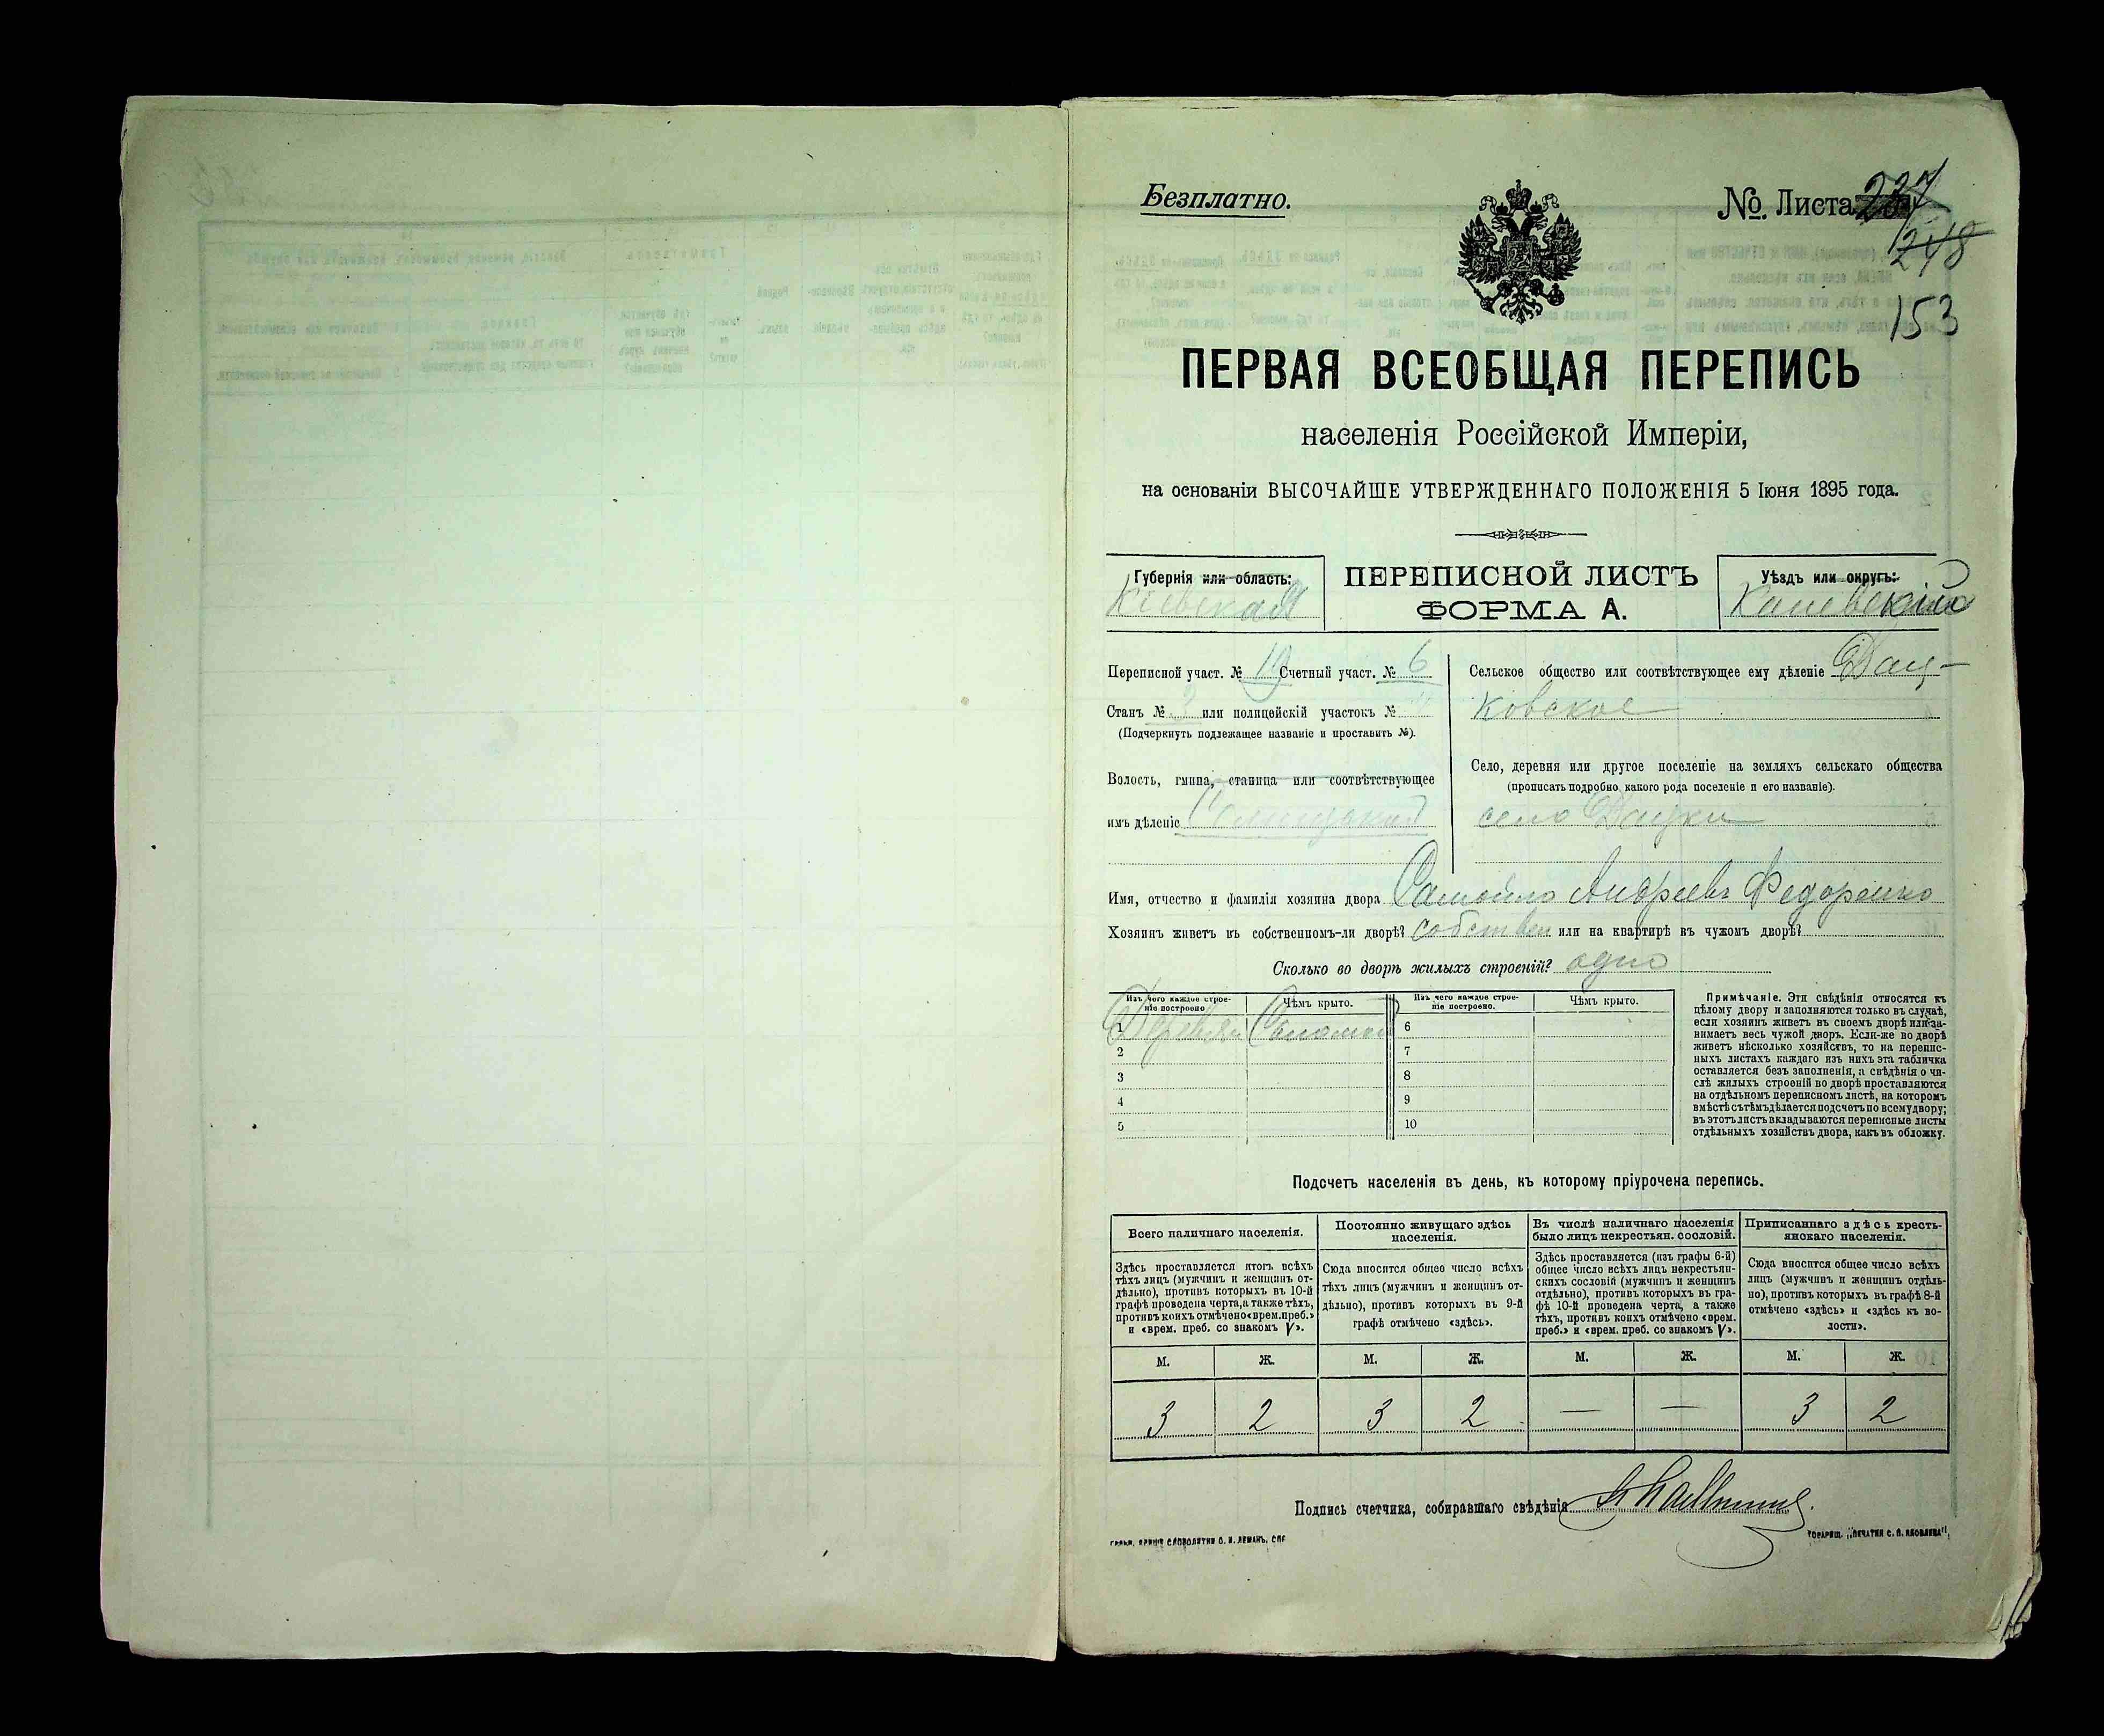 Безплатно.
№. Листа 237
248
153
ПЕРВАЯ ВСЕОБЩАЯ ПЕРЕПИСЬ
населенія Россійской Имперіи,
на основаніи ВЫСОЧАЙШЕ УТВЕРЖДЕННАГО ПОЛОЖЕНІЯ 5 Іюня 1895 года.
Губернія или область:
Кіевская
ПЕРЕПИСНОЙ ЛИСТЪ
ФОРМА А.
Уѣздъ или округъ:
Каневскій
Переписной участ. № 19 Счетный участ. № 6
Станъ № 2 или полицейскій участокъ №
(Подчеркнуть подлежащее названіе и проставить №).
Волость, гмина, станица или соотвѣтствующее
имъ дѣленіе
Сельское общество или соотвѣтствующее ему дѣленіе Дац-
ковское
Село, деревня или другое поселеніе на земляхъ сельскаго общества
(прописать подробно какого рода поселеніе и его названіе).
село Дацки
Имя, отчество и фамилія хозяина двора Самойло Андреевъ Федоренко
Хозяинъ живетъ въ собственномъ-ли дворѣ? собствен или на квартирѣ въ чужомъ дворѣ?
Сколько во дворѣ жилыхъ строеній? одно
Изъ чего каждое строе-
ніе построено
Чѣмъ крыто.
Изъ чего каждое строе-
ніе построено.
Чѣмъ крыто.
1 Деревян Соломой
2
3
4
5
6
7
8
9
10
Примѣчаніе. Эти свѣдѣнія относятся къ
цѣлому двору и заполняются только въ случаѣ,
если хозяинъ живетъ въ своемъ дворѣ или за-
нимаетъ весь чужой дворъ. Если-же во дворѣ
живетъ нѣсколько хозяйствъ, то на перепис-
ныхъ листахъ каждаго изъ нихъ эта табличка
оставляется безъ заполненія, а свѣдѣнія о чи-
слѣ жилыхъ строеній во дворѣ проставляются
на отдѣльномъ переписномъ листѣ, на которомъ
вмѣстѣ съ тѣмъ дѣлается подсчетъ по всему двору;
въ этотъ листъ вкладываются переписные листы
отдѣльныхъ хозяйствъ двора, какъ въ обложку.
Подсчетъ населенія въ день, къ которому пріурочена перепись.
Всего наличнаго населенія.
Здѣсь проставляется итогъ всѣхъ
тѣхъ лицъ (мужчинъ и женщинъ от-
дѣльно), противъ которыхъ въ 10-й
графѣ проведена черта, а также тѣхъ,
противъ коихъ отмѣчено «врем. преб.»
и «врем. преб. со знакомъ V».
Постоянно живущаго здѣсь
населенія.
Сюда вносится общее число всѣхъ
тѣхъ лицъ (мужчинъ и женщинъ от-
дѣльно), противъ которыхъ въ 9-й
графѣ отмѣчено «здѣсь».
Въ числѣ наличнаго населенія
было лицъ некрестьян. сословій.
Здѣсь проставляется (изъ графы 6-й)
общее число всѣхъ лицъ некрестьян-
скихъ сословій (мужчинъ и женщинъ
отдѣльно), противъ которыхъ въ гра-
фѣ 10-й проведена черта, а также
тѣхъ, противъ коихъ отмѣчено «врем.
преб.» и «врем. преб. со знакомъ V».
Приписаннаго здѣсь кресть-
янскаго населенія.
Сюда вносится общее число всѣхъ
лицъ (мужчинъ и женщинъ отдѣль-
но), противъ которыхъ въ графѣ 8-й
отмѣчено «здѣсь» и «здѣсь въ во-
лости».
М. Ж. М. Ж. М. Ж. М. Ж.
3 2 3 2 — — 3 2
Подпись счетчика, собиравшаго свѣдѣнія
СЛОВОЛИТНЯ О. И. ЛЕМАНЪ, СПГ
ТОВАРИЩ. „ПЕЧАТНЯ С. П. ЯКОВЛЕВА",